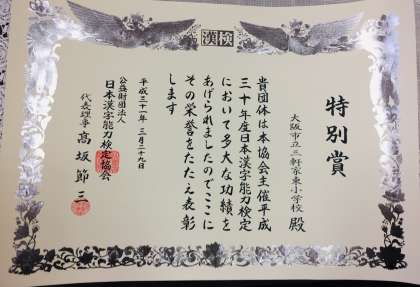 漢検
特別賞
大阪市立三軒家東小学校 殿
貴団体は本協会主催平成
三十年度日本漢字能力検定
において多大な功績を
あげられましたのでここに
その栄誉をたたえ表彰
します
平成三十一年 三月二十九日
公益財団法人
日本漢字能力検定協会
代表理事 髙坂節三